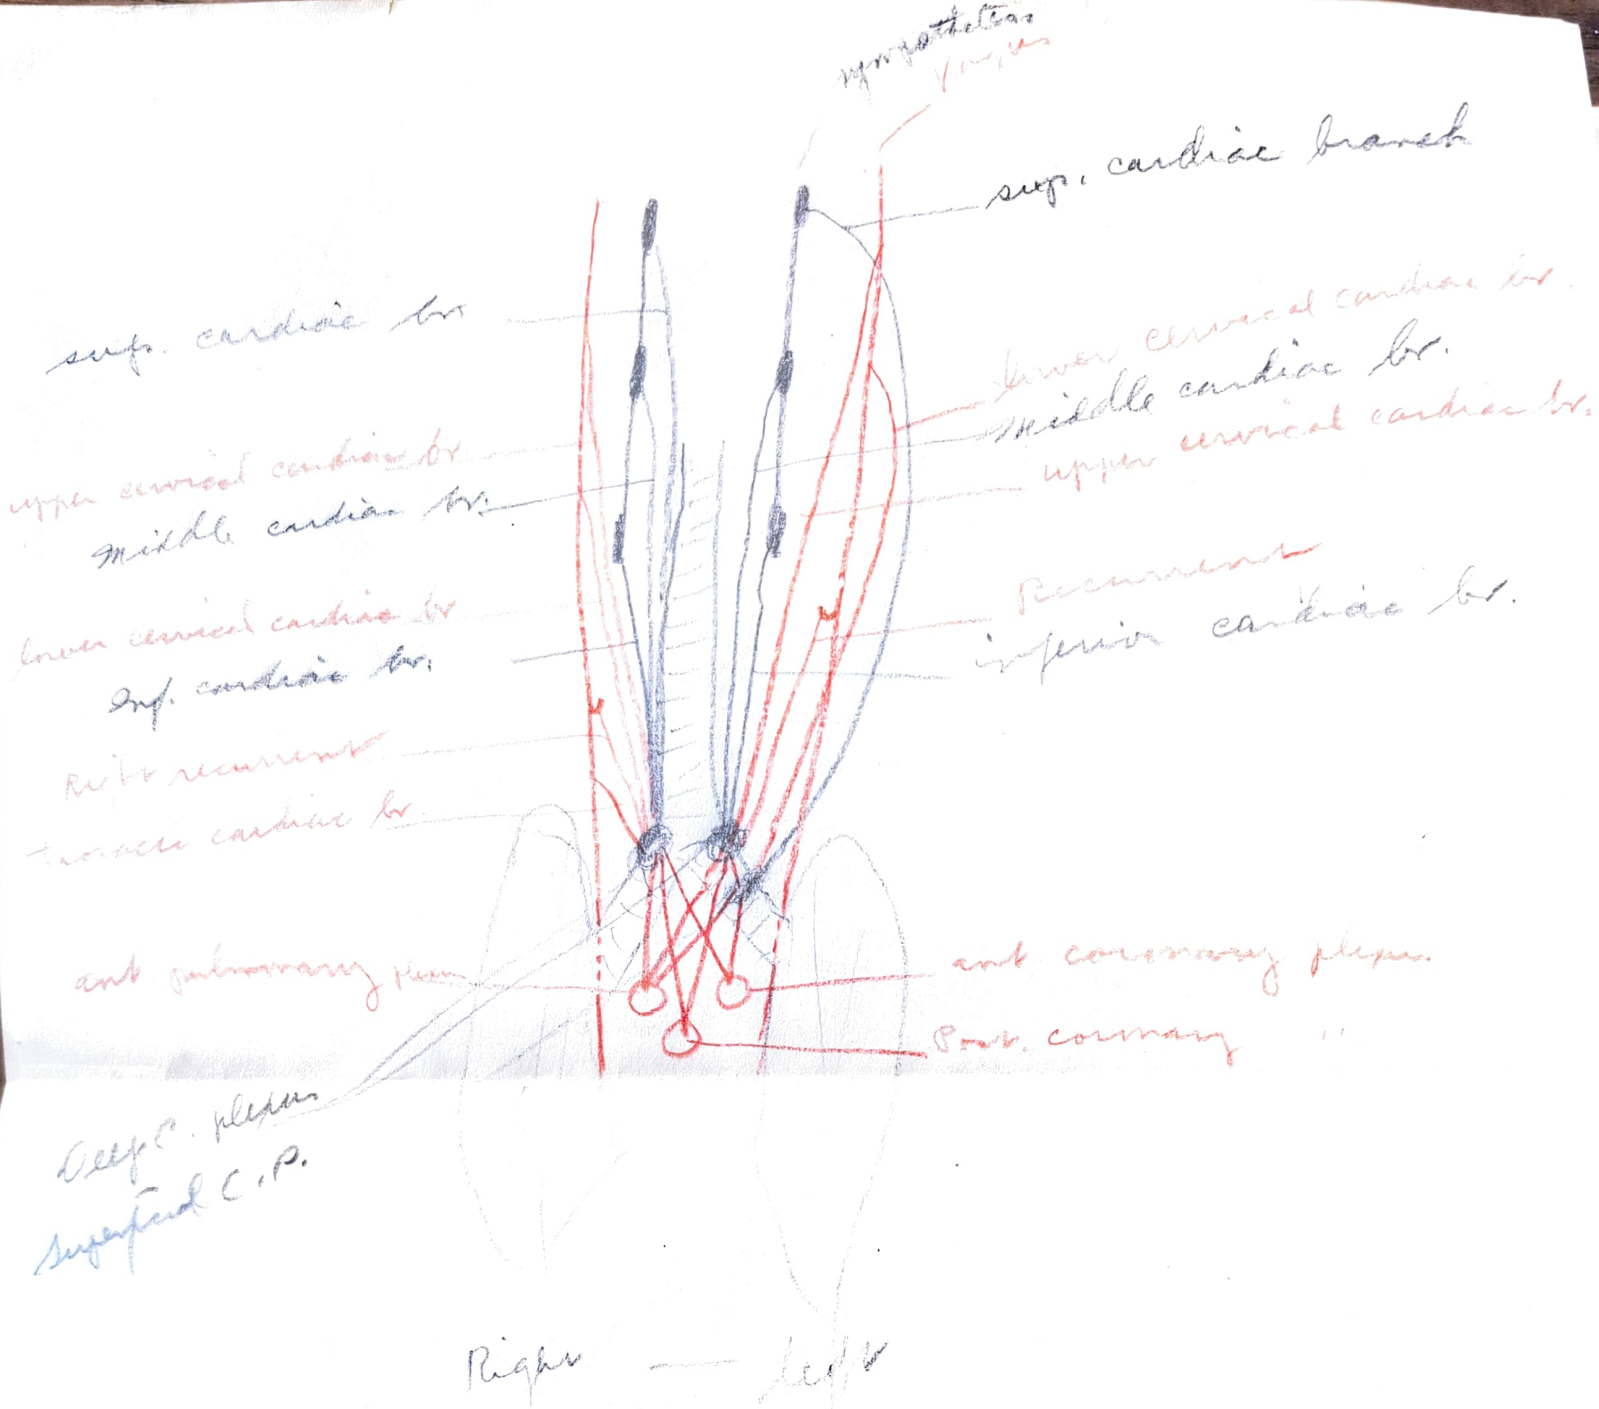 sympathetic
Vagus
sup. cardiac branch
sup. cardiac br
lower cervical cardiac br.
Middle cardiac br.
upper cervical cardiac br.
upper cervical cardiac br
Middle cardiac br.
Recurrent
inferior cardiac br.
lower cervical cardiac br
Inf. cardiac br.
Right recurrent
thoracic cardiac br.
ant pulmonary plexus
ant. coronary plexus
Post. coronary "
Deep C. plexus
Superficial C.P.
Right — left